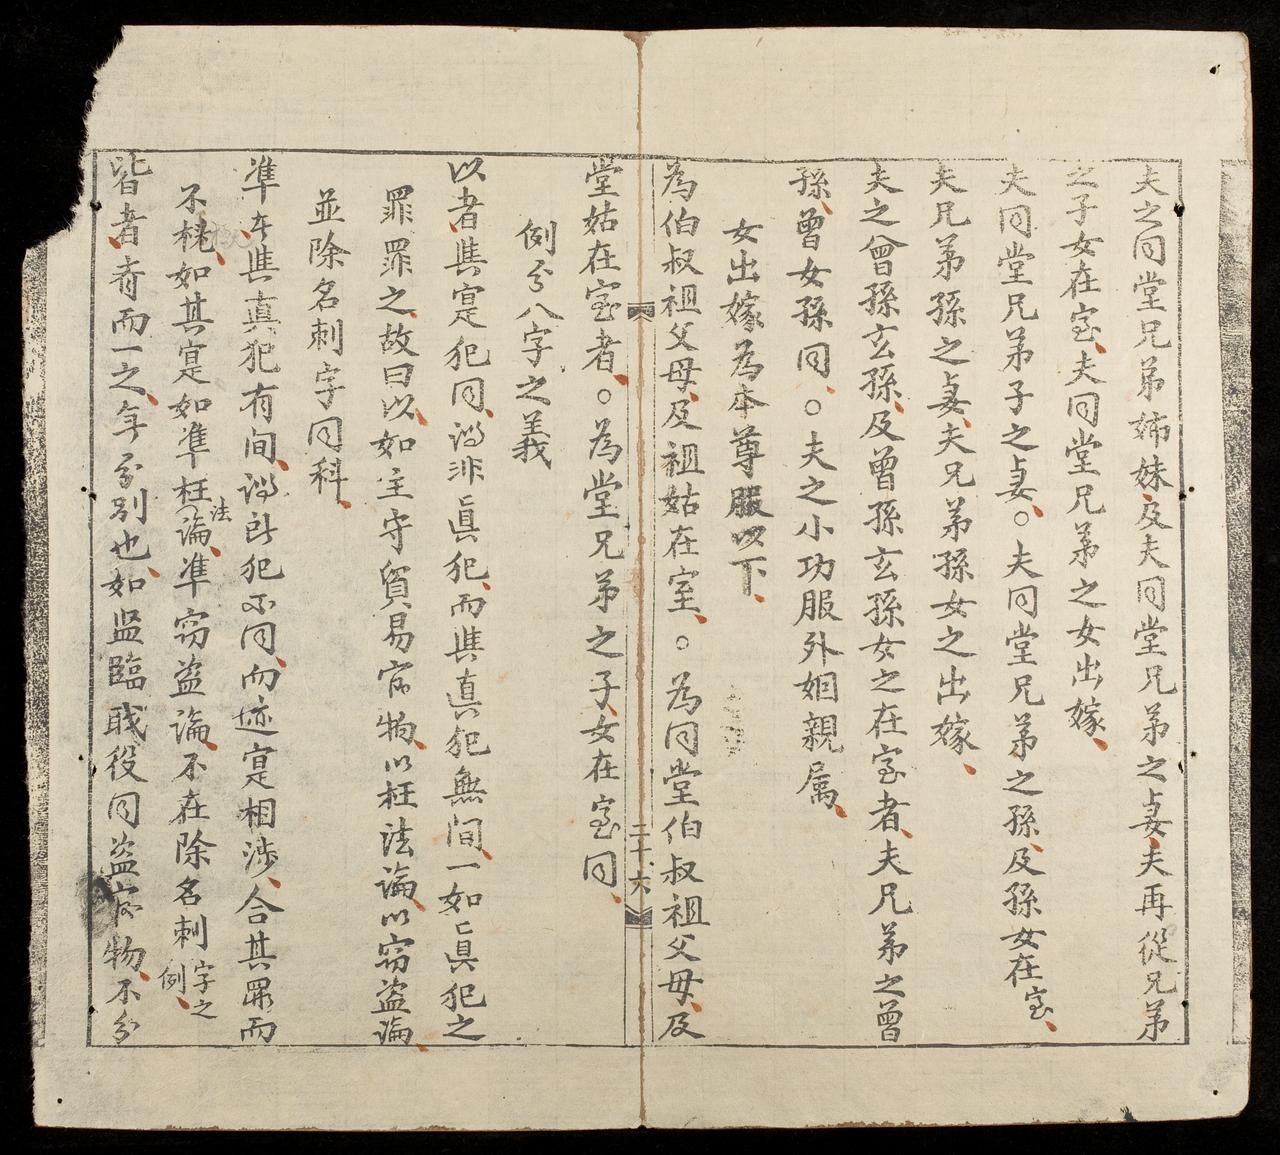 夫之同堂兄弟姊妹及夫同堂兄弟之妻夫再從兄弟
之子女在室夫同堂兄弟之女出嫁
夫同堂兄弟子之妻○夫同堂兄弟之孫及孫女在室
夫兄弟孫之妻夫兄弟孫女之出嫁
夫之曾孫玄孫及曾孫玄孫女之在室者夫兄弟之曾
孫曾女孫同○夫之小功服外姻親属
女出嫁為本尊服以下
為伯叔祖父母及祖姑在室○為同堂伯叔祖父母及
二十六
堂姑在室者○為堂兄弟之子女在室同
例分八字之義
以者與寔犯同謂非真犯而與真犯無間一如真犯之
罪罪之故曰以如主守貿易官物以枉法論以窃盗論
並除名刺字同科
准者與真犯有间謂所犯不同而迹寔相涉合其罪而
不槐如其寔如准枉法論准窃盗論不在除名刺字之例
皆者斉而一之無分別也如监臨職役同盗官物不分